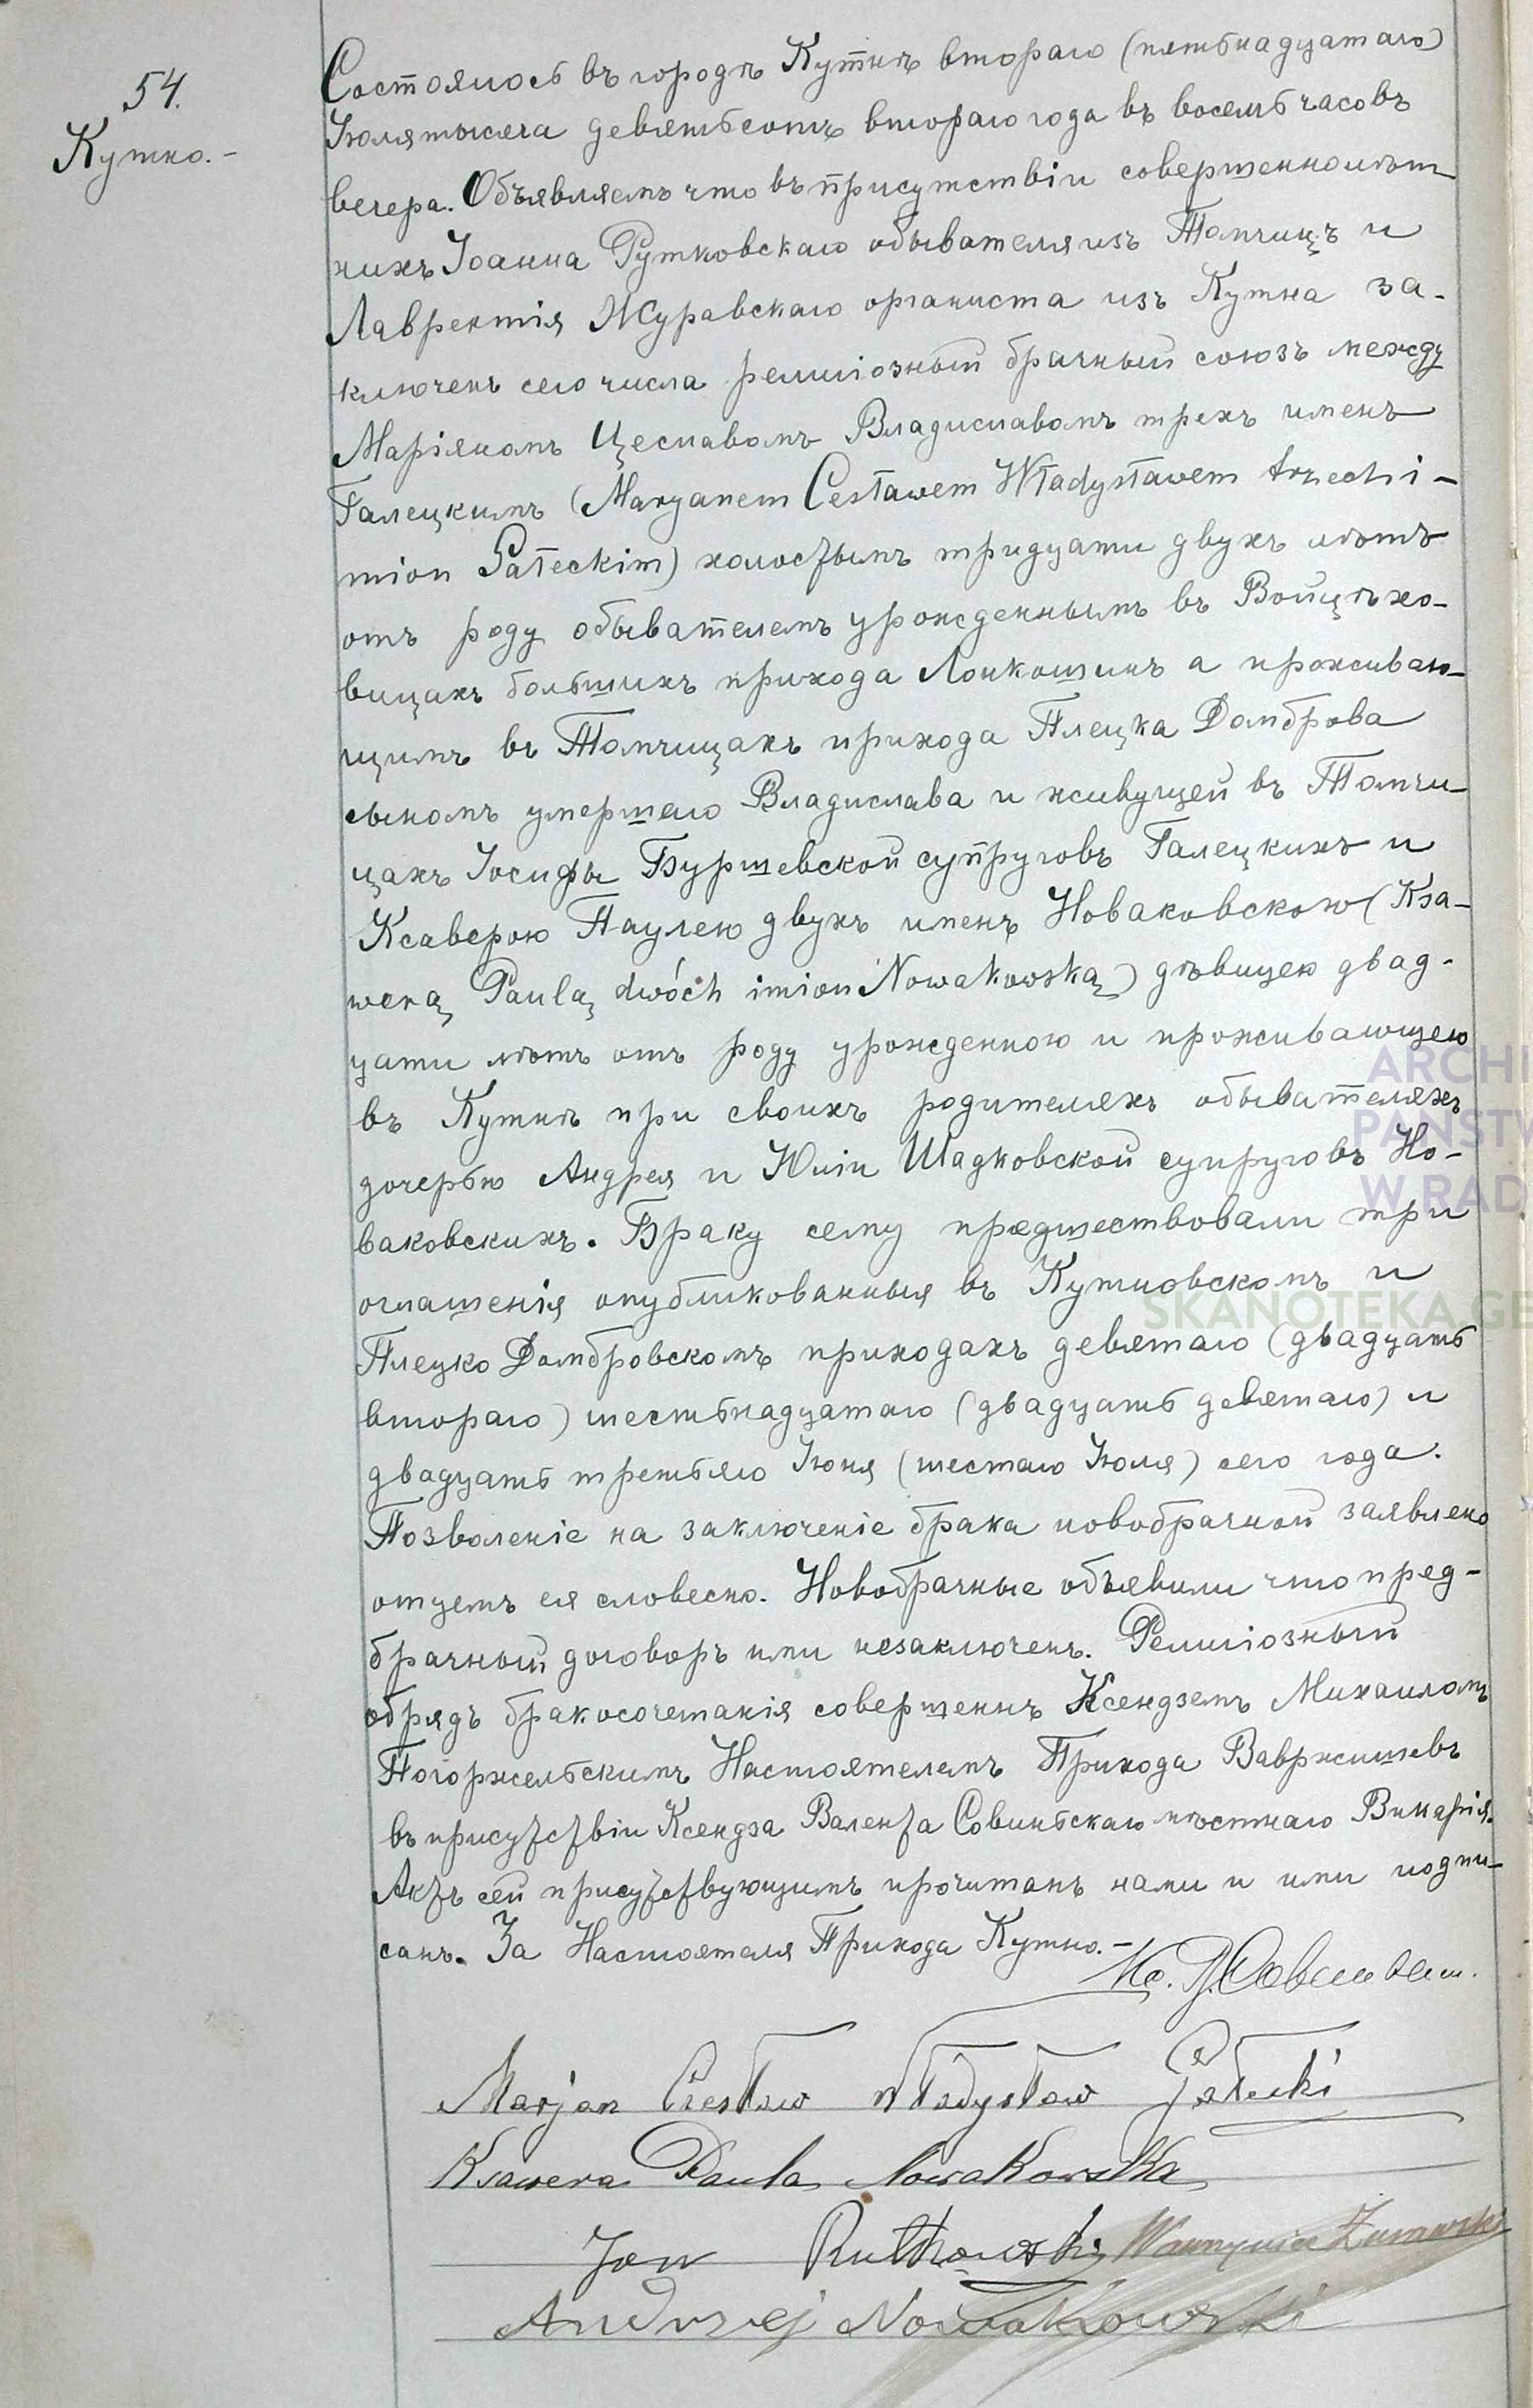 54.
Кутно.-
Состоялось въ городѣ Кутнѣ втораго (пятьнадцатаго)
Іюля тысяча девятьсотъ втораго года въ восемь часовъ
вечера. Объявляемъ что въ присутствіи совершеннолѣт-
нихъ Іоанна Рутковскаго обывателя изъ Томчицъ и
Лаврентія Журавскаго органиста изъ Кутна за-
ключенъ сего числа религіозный брачный союзъ между
Маріяномъ Цеславомъ Владиславомъ трехъ именъ
Галецкимъ (Maryanem Cesławem Władysławem trzech i-
mion Gałeckim) холостымъ тридцати двухъ лѣтъ
отъ роду обывателемъ урожденнымъ въ Войцѣхо-
вицахъ большихъ прихода Лонкошинъ а проживаю-
щимъ въ Томчицахъ прихода Плецка Домброва
сыномъ умершаго Владислава и живущей въ Томчи-
цахъ Іосифы Буршевской супруговъ Галецкихъ и
Ксаверою Паулею двухъ именъ Новаковскою (Ksa-
werą Paulą dwóch imion Nowakowską) дѣвицею двад-
цати лѣтъ отъ роду урожденною и проживающею
въ Кутнѣ при своихъ родителяхъ обывателяхъ
дочерью Андрея и Юліи Шадковской супруговъ Но-
ваковскихъ. Браку сему предшествовали три
оглашенія опубликованныя въ Кутновскомъ и
Плецко Домбровскомъ приходахъ девятаго (двадцать
втораго) шестьнадцатаго (двадцать девятаго) и
двадцать третьяго Іюня (шестаго Іюля) сего года.
Позволеніе на заключеніе брака новобрачной заявлено
отцемъ ея словесно. Новобрачные объявили что пред-
брачный договоръ ими незаключенъ. Религіозный
обрядъ бракосочетанія совершенъ Ксендземъ Михаиломъ
Погоржельскимъ Настоятелемъ Прихода Вавржишевъ
въ присутствіи Ксендза Валента Совиньскаго мѣстнаго Викарія.
Актъ сей присутствующимъ прочитанъ нами и ими подпи-
санъ. За Настоятеля Прихода Кутно.-
Кс. В. Совиньски.
Marjan Czesław Władysław Gałecki
Ksawera Paula Nowakowska
Jan Rutkowski Wawrzyniec Żurawski
Andrzej Nowakowski
ARCHI
PAŃSTW
W RAD
SKANOTEKA.GE